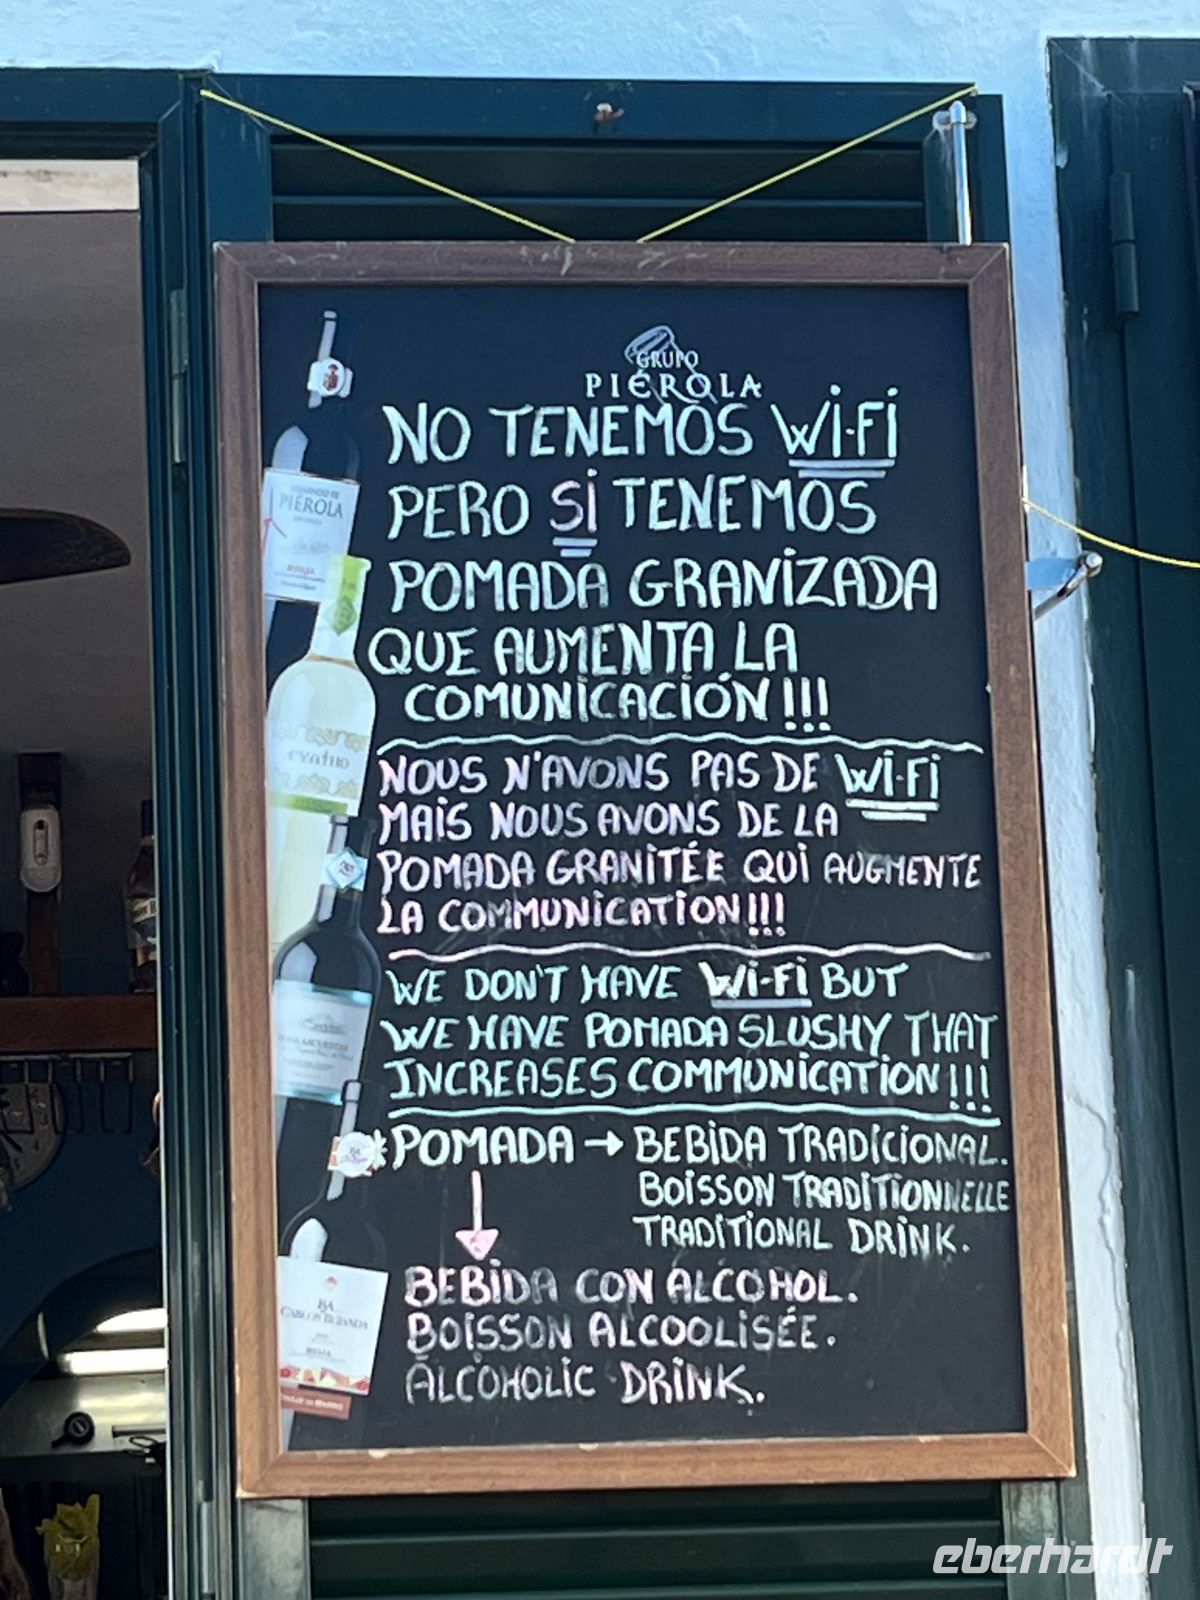 GRUPO
PIÉROLA
NO TENEMOS Wi-Fi
PERO Si TENEMOS
POMADA GRANiZADA
QUE AUMENTA LA
COMUNiCACiÓN!!!
NOUS N'AVONS PAS DE Wi-Fi
MAiS NOUS AVONS DE LA
POMADA GRANiTÉE QUi AUGMENTE
LA COMMUNiCATiON!!!
WE DON'T HAVE Wi-Fi BUT
WE HAVE POMADA SLUSHY THAT
INCREASES COMMUNiCATiON!!!
*POMADA → BEBiDA TRADiCiONAL.
BOiSSON TRADiTiONNELLE
TRADiTiONAL DRiNK.
BEBiDA CON ALCOHOL.
BOiSSON ALCOOLiSÉE.
ALCOHOLiC DRiNK.
PIÉROLA
RIOJA
eberhardt